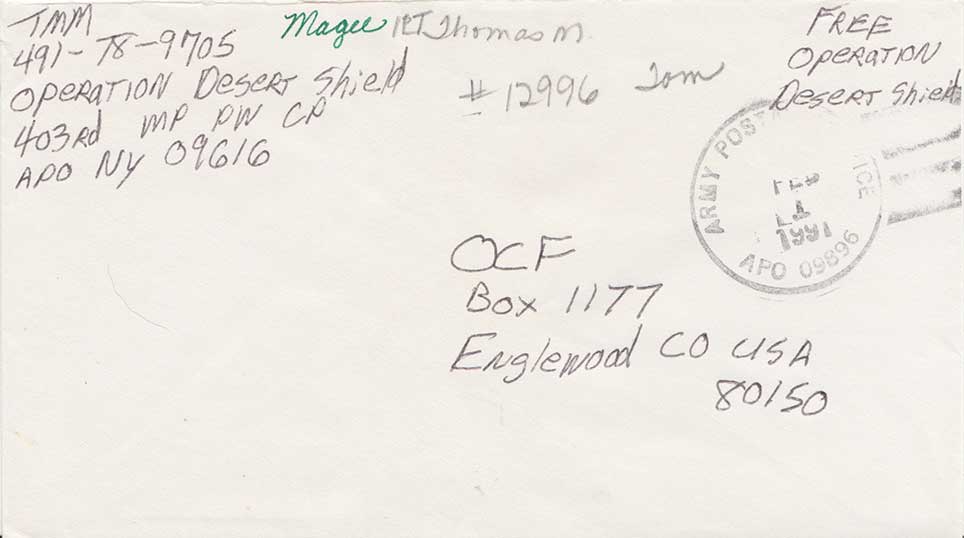 TMM
491-78-9705
OPERATION Desert Shield
403rd MP PW CP
APO NY 09616
Magee
Thomas M.
#12996 Tom
FREE
OPERATION
Desert Shield
ARMY POSTAL
FEB
1991
APO 09896
OCF
Box 1177
Englewood CO USA
80150